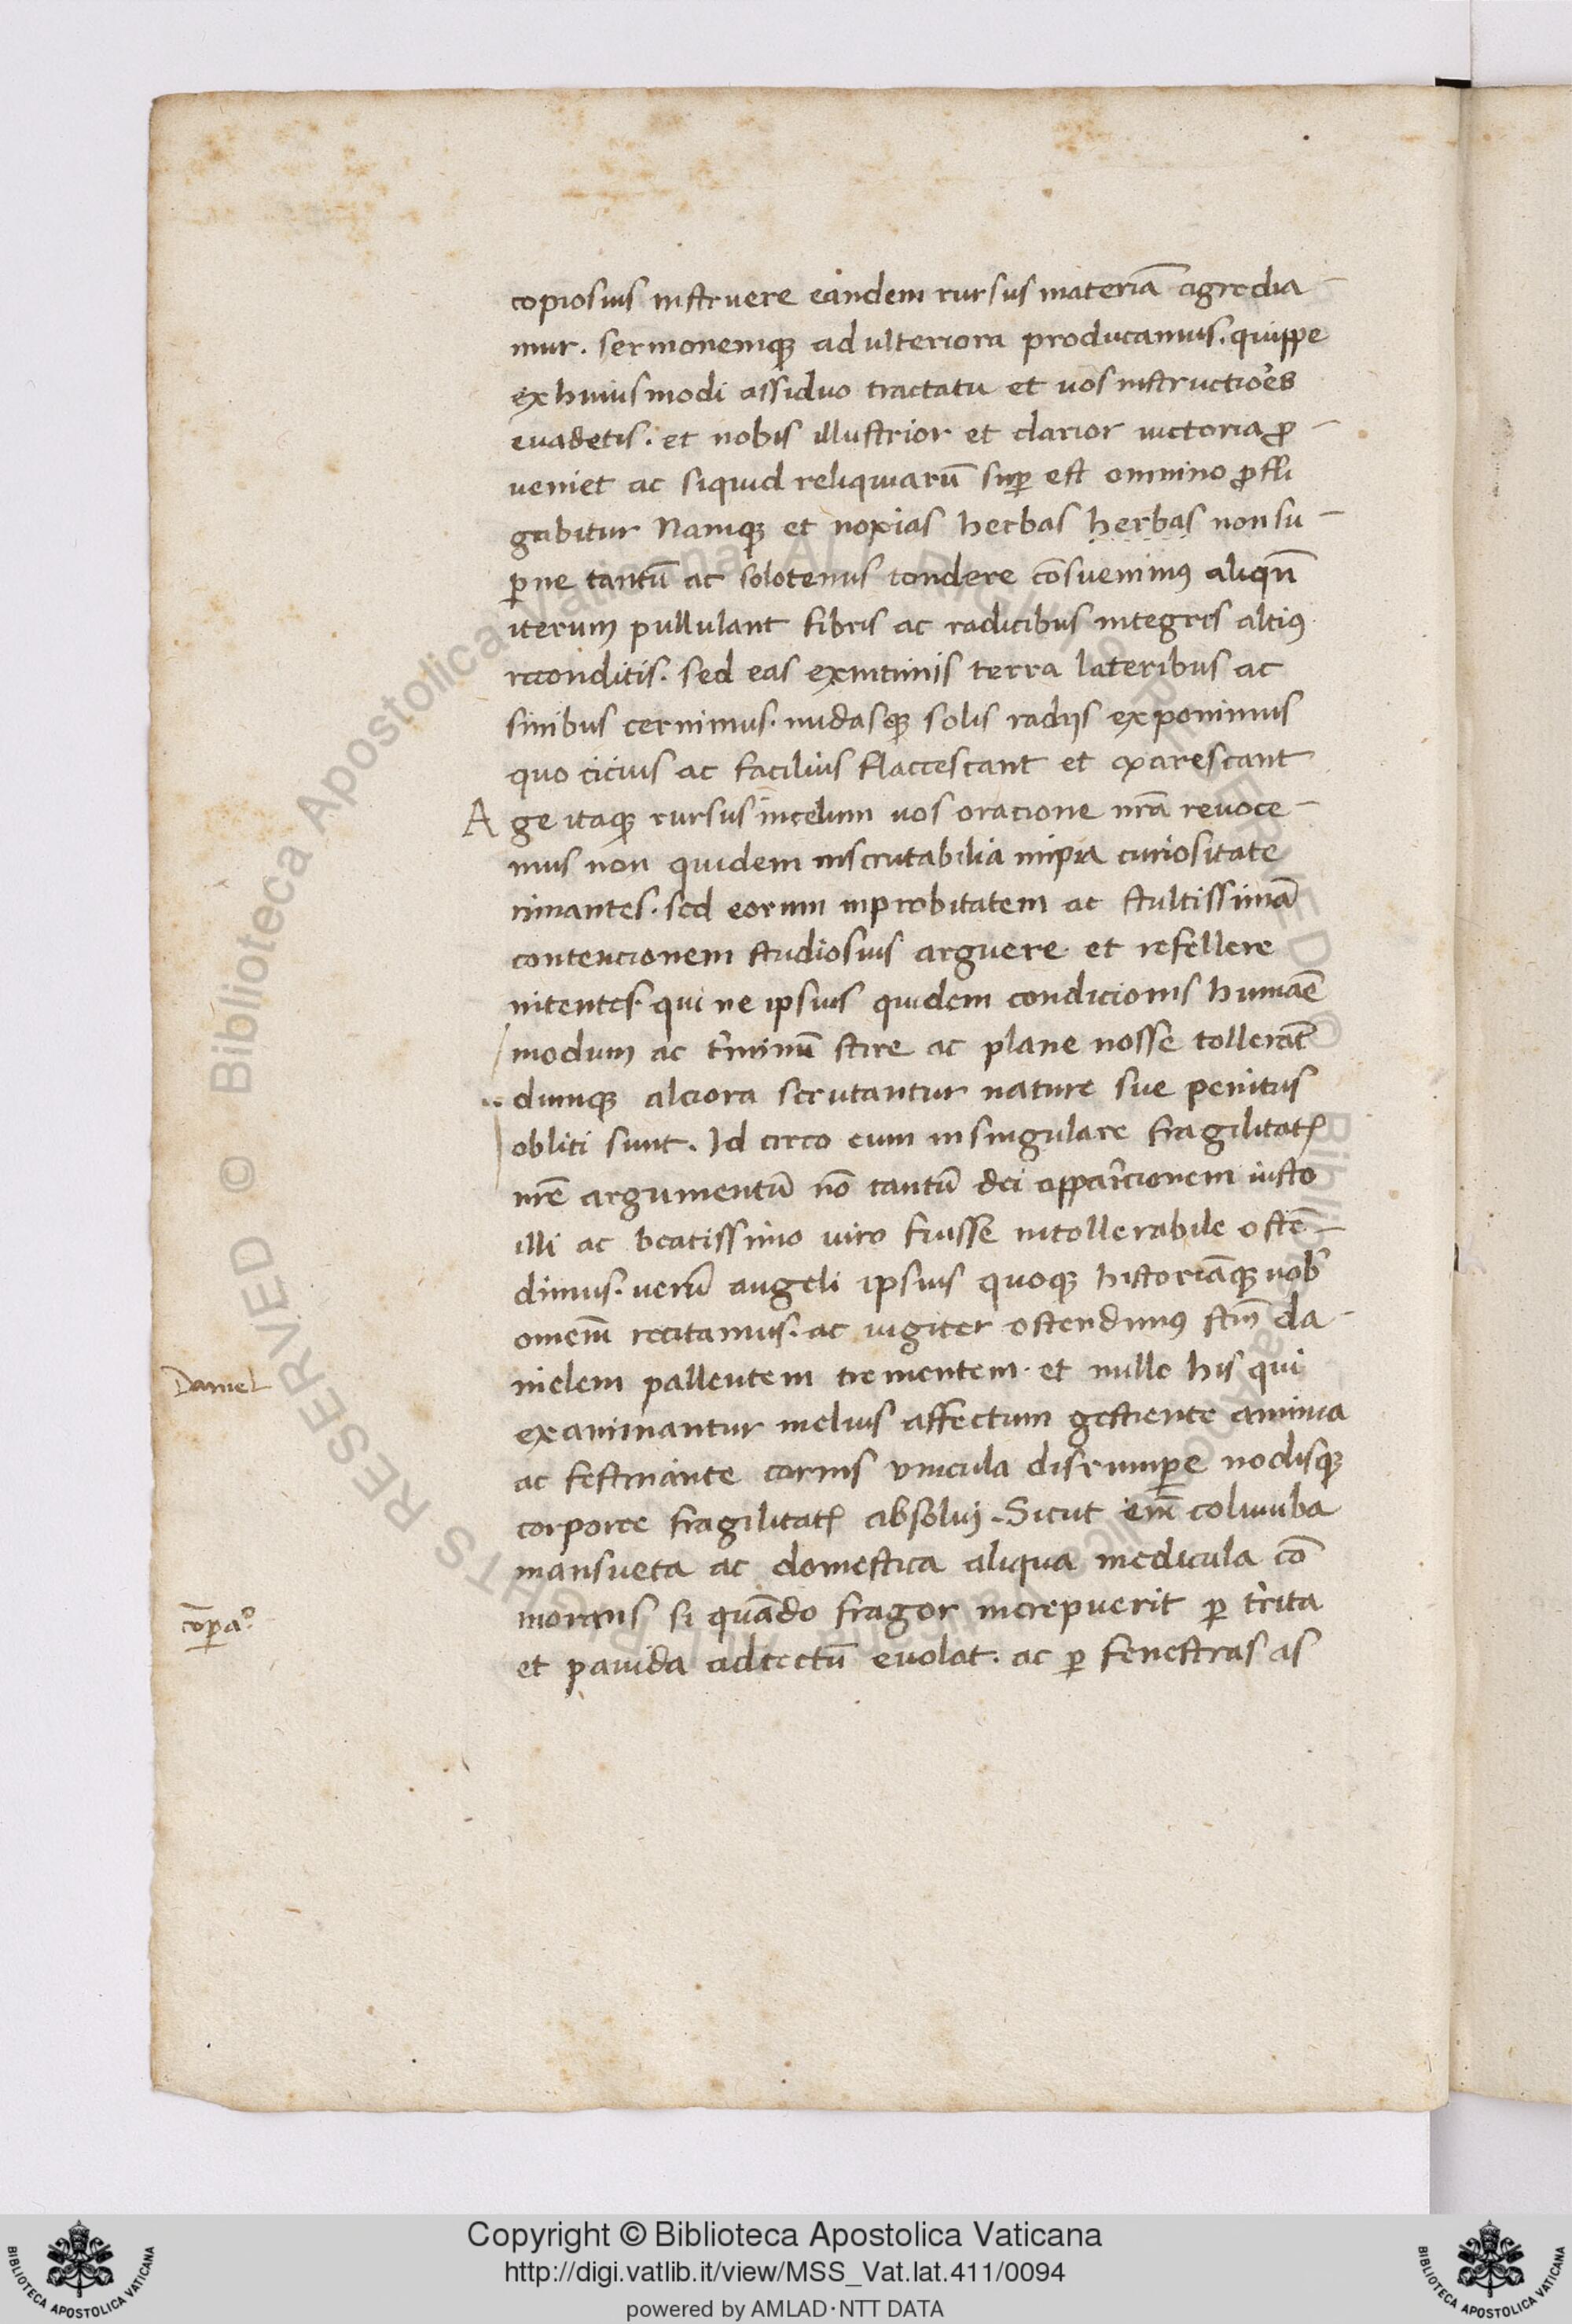 copiosius instruere eandem rursus materiā agredia-
mur. sermonemqꝫ ad ulteriora producamus. quippe
ex huiusmodi assiduo tractatu et uos instructiōes
euadetis. et nobis illustrior et clarior uictoria ꝓ-
ueniet ac siquid reliquiarū suꝑ est omnino ꝓfli
gabitur Namqꝫ et noxias herbas herbas non su-
ꝑne tantū ac solotenus tondere cōsueuimꝰ aliqn̄
iterum pullulant fibris ac radicibus integris altiꝰ
reconditis. sed eas ex intimis terra lateribus ac
sinibus cernimus. nudasqꝫ solis radijs exponimus
quo cicius ac facilius flaccescant et exarescant
Age itaqꝫ rursus in celum uos oracione nr̄a reuoce-
mus non quidem inscrutabilia impia curiositate
rimantes. sed eorum inprobitatem ac stultissimā
contencionem studiosius arguere et refellere
nitentes. qui ne ipsius quidem condicionis humāe
modum ac t̄minū scire ac plane nosse tollerāt
dumqꝫ alciora scrutantur nature sue penitus
obliti sunt. Id circo eum in singulare fragilitatꝭ
nr̄e argumentū nō tantū dei apparicionem iusto
illi ac beatissimo uiro fuisse intollerabile ostē-
dimus. uerū angeli ipsius quoqꝫ historiāqꝫ uob̄
omem̄ recitamus. ac iugiter ostendimꝰ stm̄ da-
nielem pallentem trementem. et nullo his qui
Daniel
exanimantur melius affectum gestiente anima
ac festinante carnis vincula disrumꝑe nodisqꝫ
corporee fragilitatꝭ absolui. Sicut em̄ columba
mansueta ac domestica aliqua medicula cō
morans si quādo fragor increpuerit ꝑ t̄rita
cōꝑaº.
et pauida ad tectū euolat. ac ꝑ fenestras as
Copyright © Biblioteca Apostolica Vaticana
http://digi.vatlib.it/view/MSS_Vat.lat.411/0094
powered by AMLAD·NTT DATA